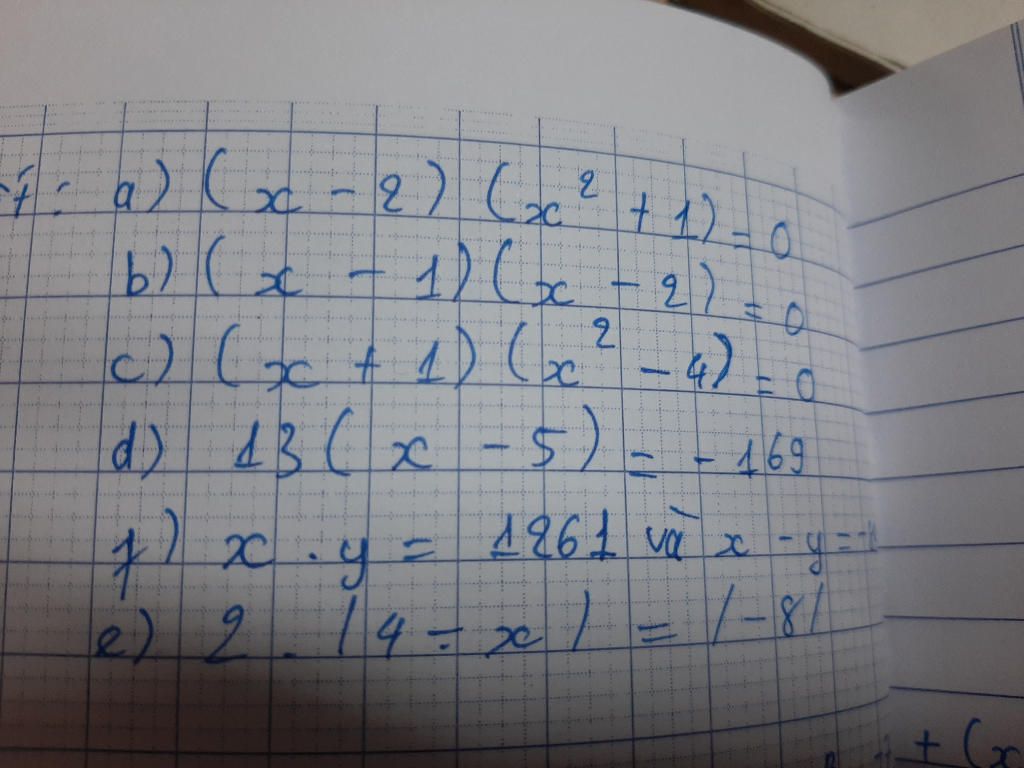 a) (x - 2) (x² + 1) = 0
b) (x - 1) (x - 2) = 0
c) (x + 1) (x² - 4) = 0
d) 13 (x - 5) = - 169
f) x . y = 1261 và x - y =
e) 2 . |4 - x| = |-8|
+ (x